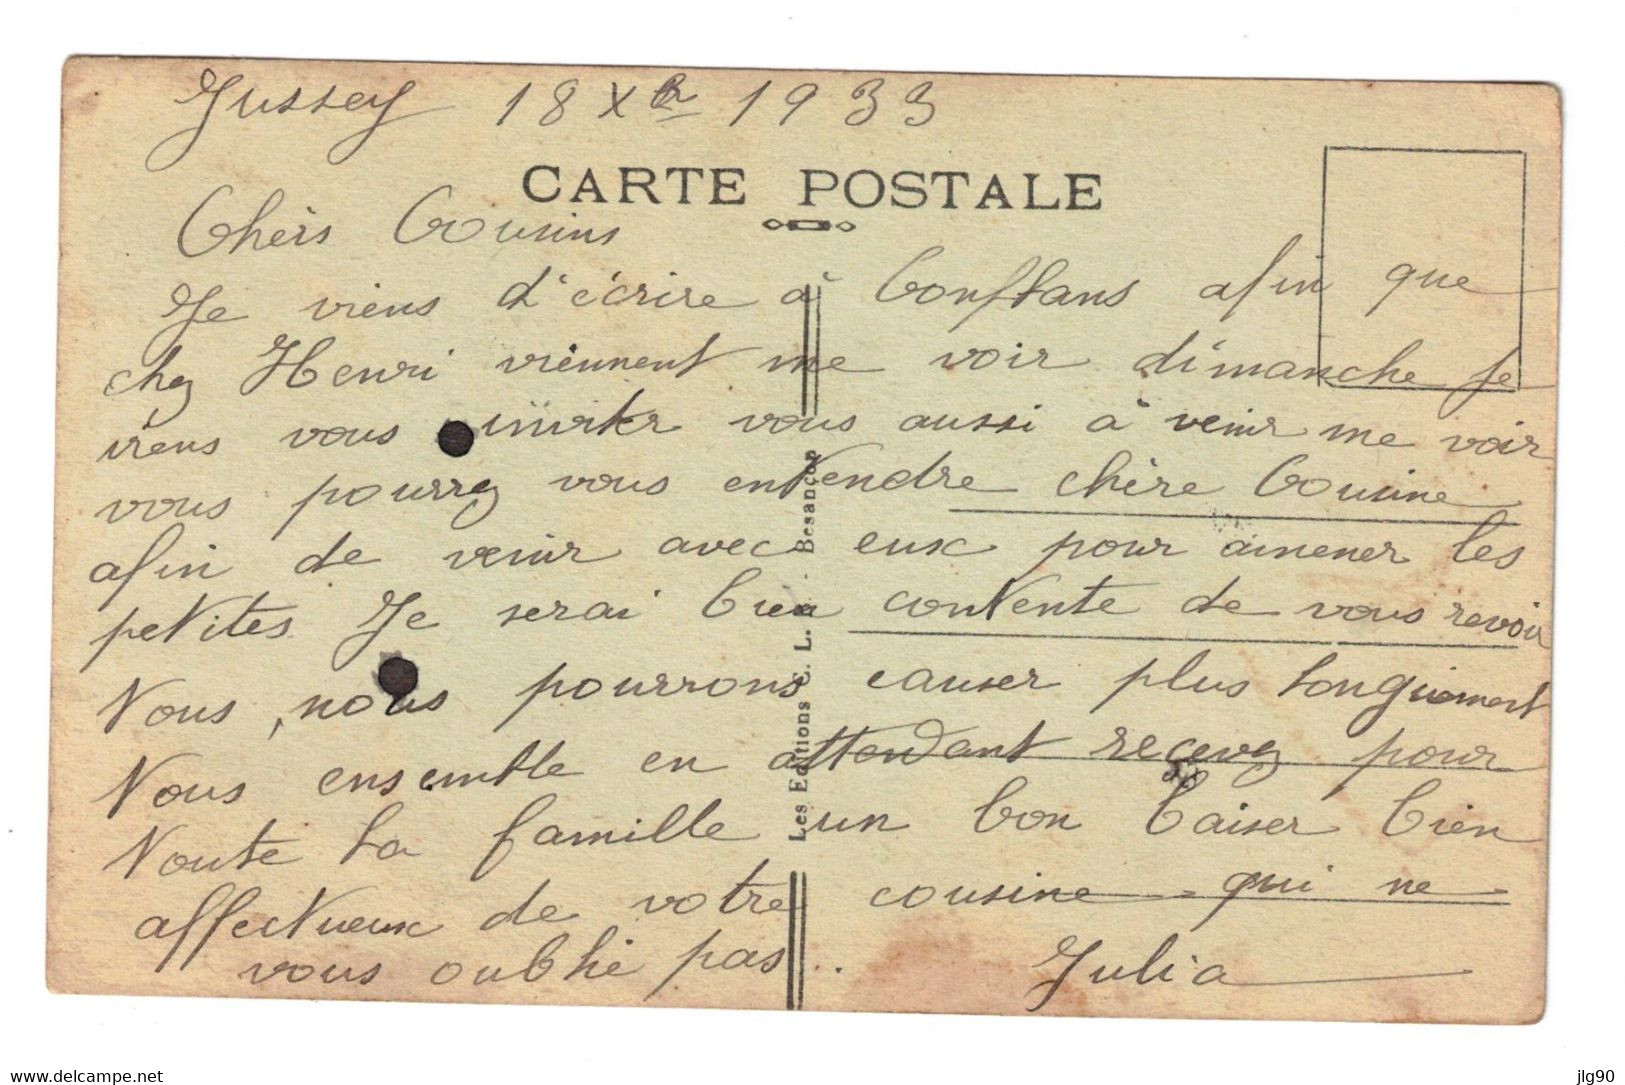 Jussey 18 Xbre 1933
CARTE POSTALE
Chèrs Cousins
Je viens d'écrire à Conflans afin que
chez Henri viennent me voir dimanche je
viens vous inviter vous aussi à venir me voir
vous pourrez vous entendre chère Cousine
afin de venir avec eux pour amener les
petites Je serai bien contente de vous revoir
Nous nous pourrons causer plus longuement
Tous ensemble en attendant recevez pour
toute la famille un bon baiser bien
affectueux de votre cousine qui ne
vous oublie pas..
Julia
Les Editions C. L. B. Besançon
www.delcampe.net
jlg90